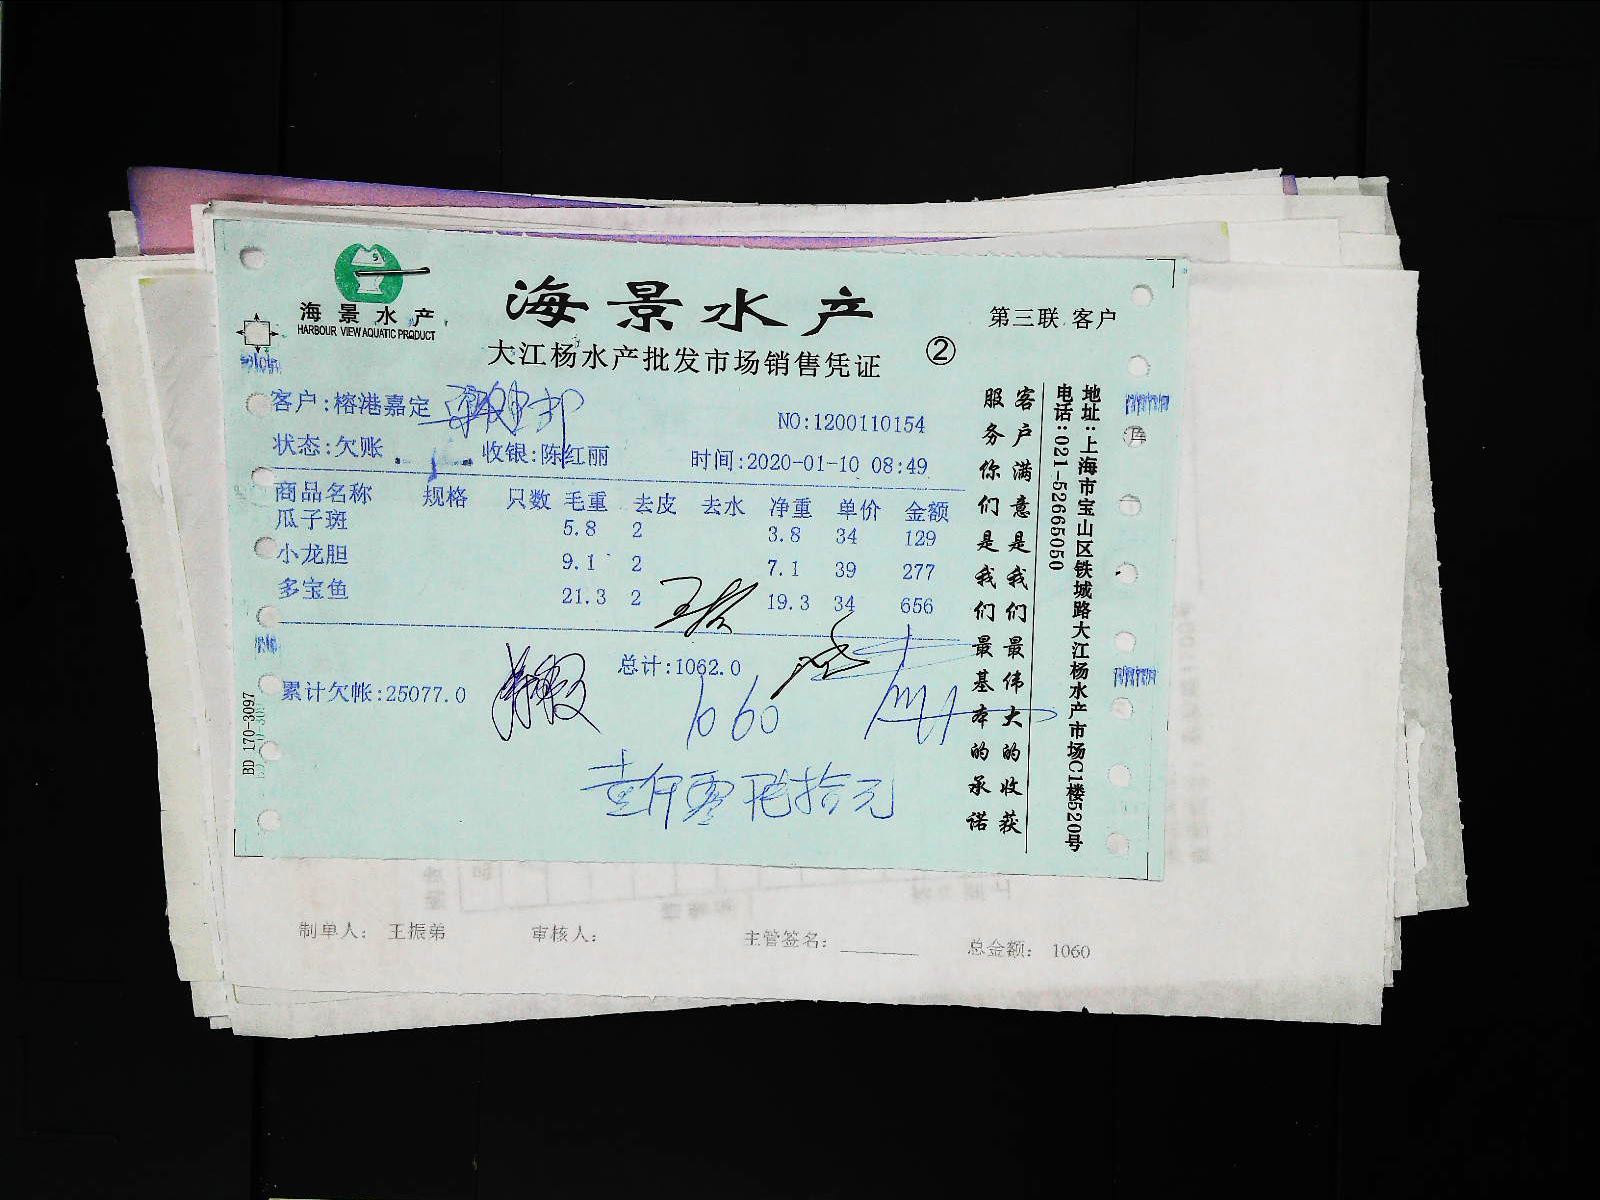 海景水产
HARBOUR VIEW AQUATIC PRODUCT
海景水产
第三联 客户
大江杨水产批发市场销售凭证 ②
客户:榕港嘉定
NO:1200110154
状态:欠账 收银:陈红丽 时间:2020-01-10 08:49
商品名称 规格 只数 毛重 去皮 去水 净重 单价 金额
瓜子斑 5.8 2 3.8 34 129
小龙胆 9.1 2 7.1 39 277
多宝鱼 21.3 2 19.3 34 656
总计:1062.0
累计欠帐:25077.0
1060
壹仟零陆拾元
客户满意是我们最伟大的收获
服务你们是我们最基本的承诺
地址:上海市宝山区铁城路大江杨水产市场C1楼520号
电话:021-52665050
BD 170-3097
制单人: 王振弟 审核人: 主管签名: 总金额: 1060